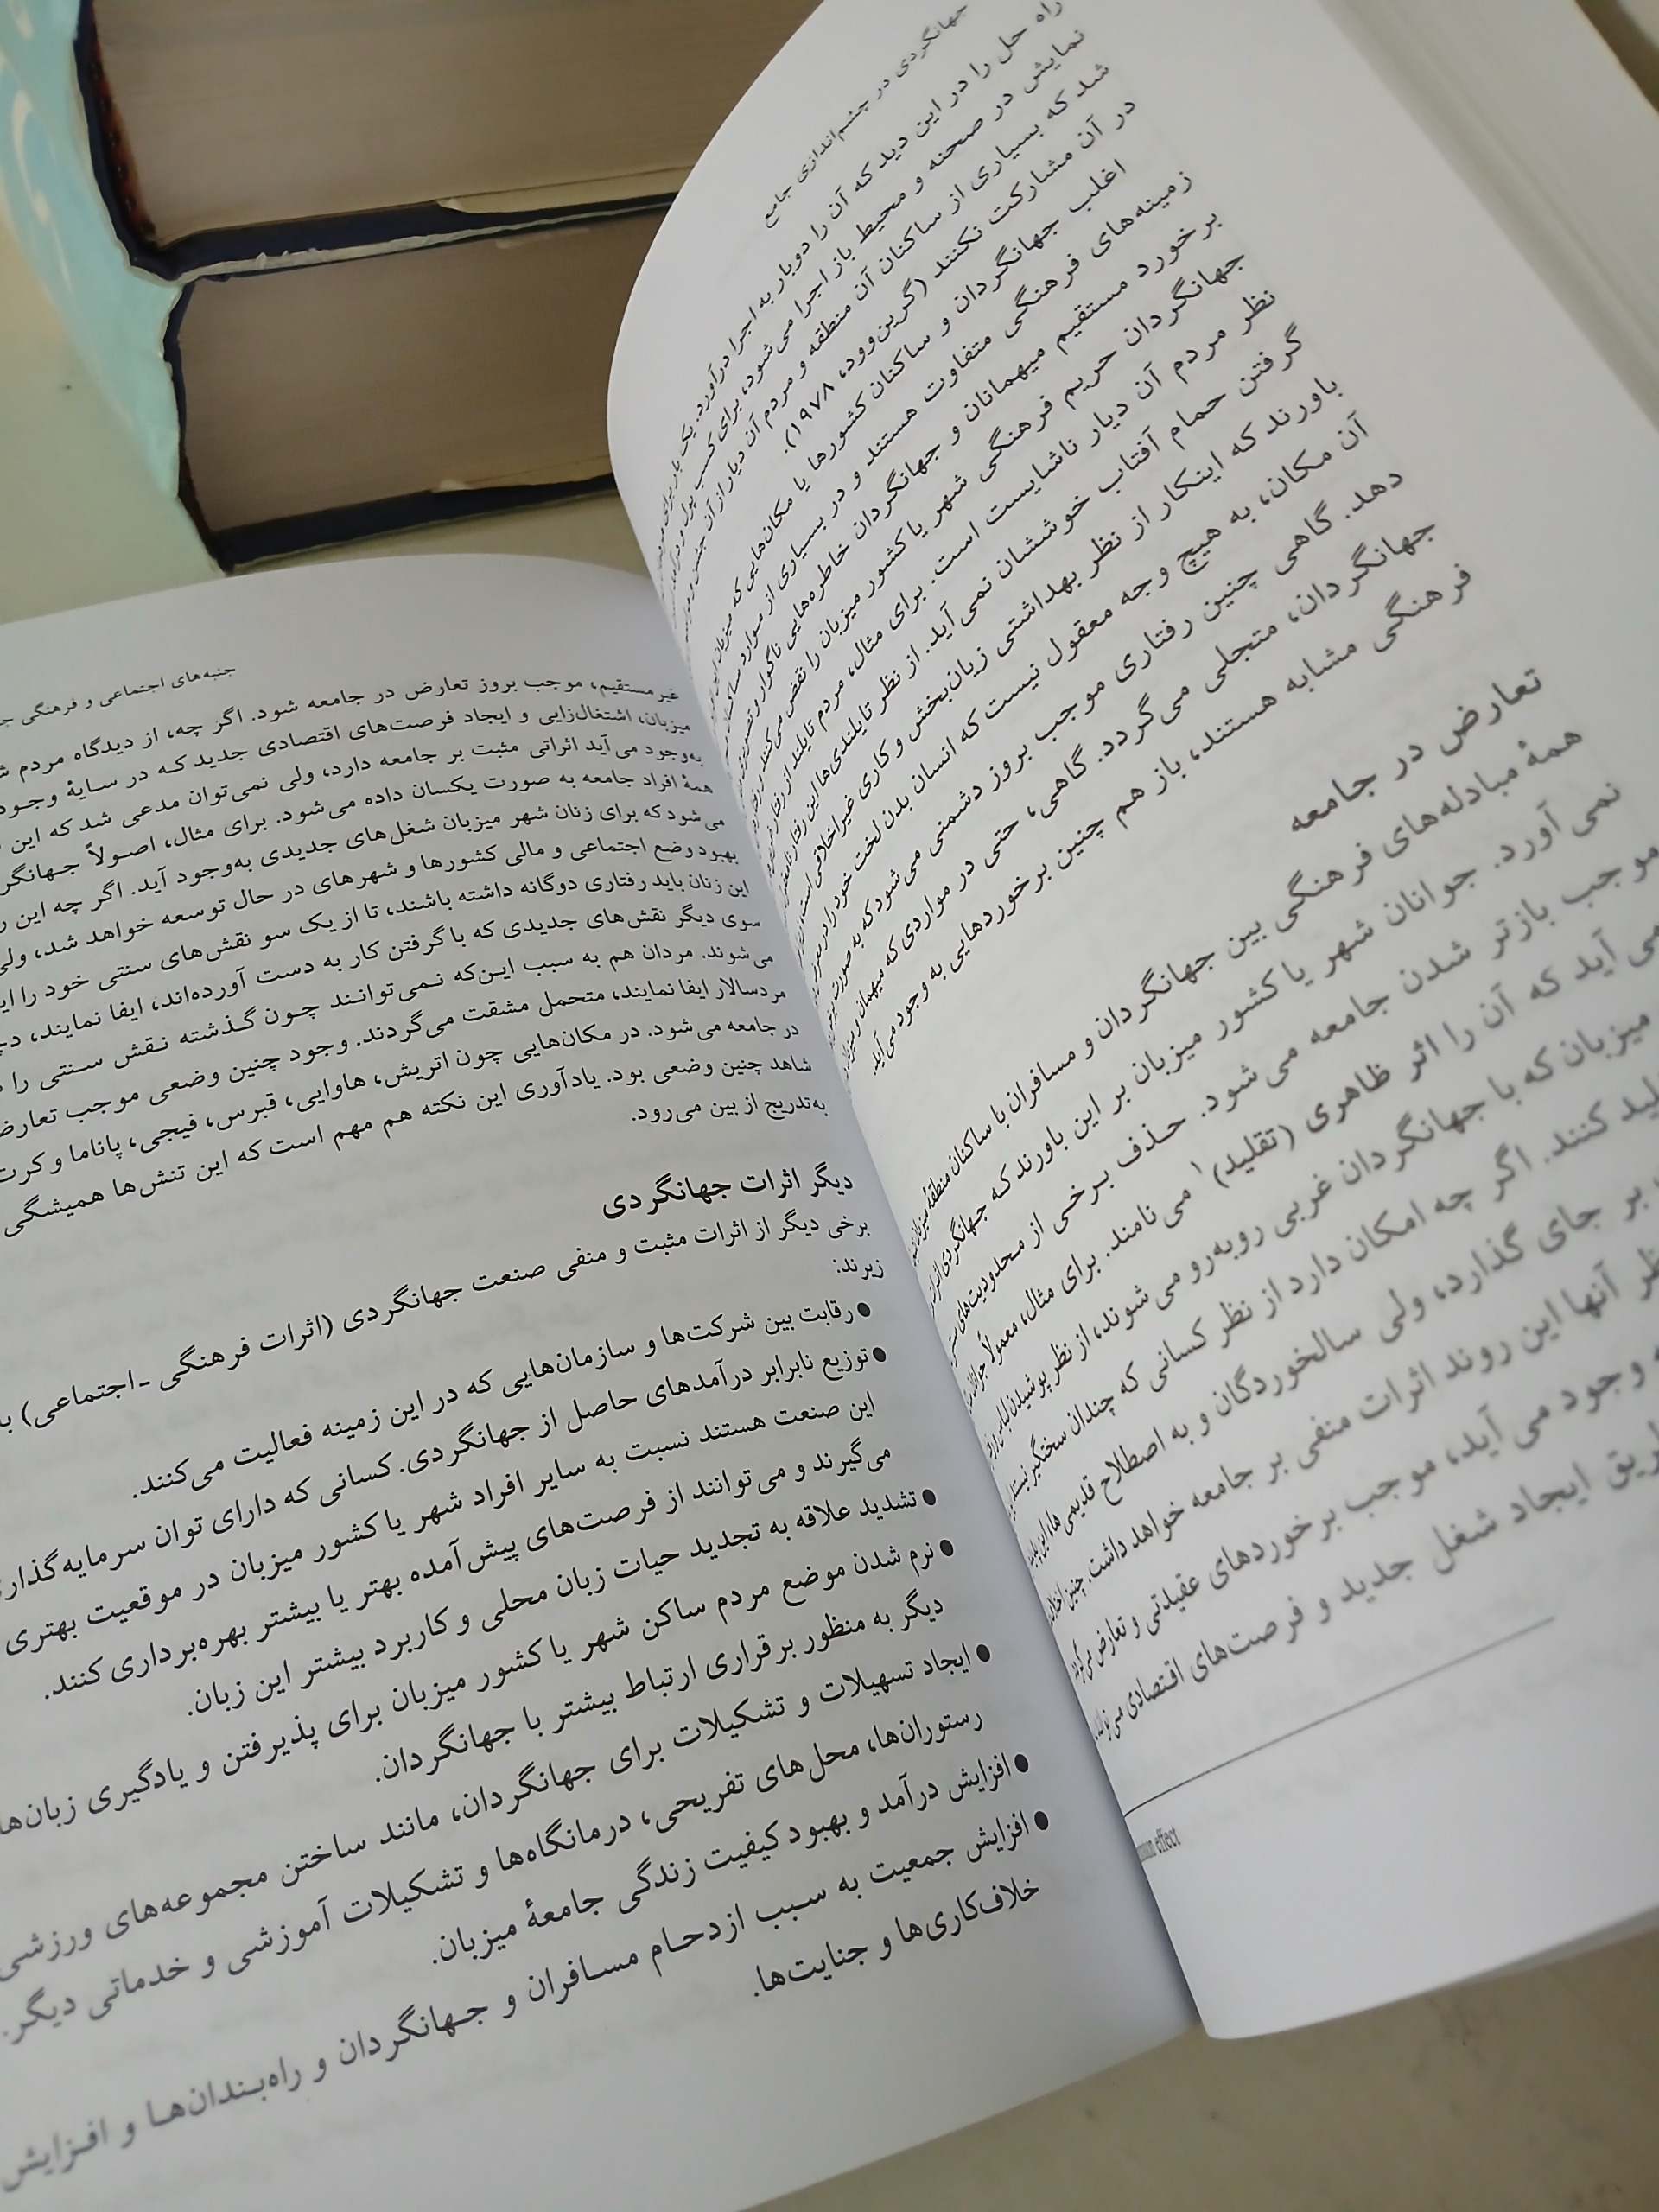 جهانگردی در چشم‌اندازی جامع
راه حل را در این دید که آن را دوبار به اجرا درآورد. یک بار برای
نمایش در صحنه و محیط باز اجرا می‌شود، برای کسب پول و درآمد
شد که بسیاری از ساکنان آن منطقه و مردم آن دیار از آن جشن و
در آن مشارکت نکنند (گرین‌وود، ۱۹۷۸).
اغلب جهانگردان و ساکنان کشورها یا مکان‌هایی که میزبان
زمینه‌های فرهنگی متفاوت هستند و در بسیاری از موارد
برخورد مستقیم میهمانان و جهانگردان خاطره‌هایی ناگوار
جهانگردان حریم فرهنگی شهر یا کشور میزبان را نقض می‌کنند و
نظر مردم آن دیار ناشایست است. برای مثال، مردم تایلند از
گرفتن حمام آفتاب خوششان نمی‌آید. از نظر تایلندی‌ها این رفتار
باورند که اینکار از نظر بهداشتی زیان‌بخش و کاری غیراخلاقی است
آن مکان، به هیچ وجه معقول نیست که انسان بدن لخت خود را در
دهد. گاهی چنین رفتاری موجب بروز دشمنی می‌شود که به صورت
جهانگردان، متجلی می‌گردد. گاهی، حتی در مواردی که میهمان و میزبان
فرهنگی مشابه هستند، باز هم چنین برخوردهایی به وجود می‌آید.
تعارض در جامعه
همهٔ مبادله‌های فرهنگی بین جهانگردان و مسافران با ساکنان منطقهٔ میزبان
نمی‌آورد. جوانان شهر یا کشور میزبان بر این باورند که جهانگردی
موجب بازتر شدن جامعه می‌شود. حذف برخی از محدودیت‌های
می‌آید که آن را اثر ظاهری (تقلید)۱ می‌نامند. برای مثال، معمولاً جوانان
میزبان که با جهانگردان غربی روبه‌رو می‌شوند، از نظر پوشیدن لباس
کنند. اگر چه امکان دارد از نظر کسانی که چندان سختگیر نیستند
بر جای گذارد، ولی سالخوردگان و به اصطلاح قدیمی‌ها
آنها این روند اثرات منفی بر جامعه خواهد داشت. چنین
وجود می‌آید، موجب برخوردهای عقیدتی و تعارض
ایجاد شغل جدید و فرصت‌های اقتصادی
effect
جنبه‌های اجتماعی و فرهنگی
غیرمستقیم، موجب بروز تعارض در جامعه شود. اگر چه، از دیدگاه مردم
میزبان، اشتغال‌زایی و ایجاد فرصت‌های اقتصادی جدید که در سایهٔ
به‌وجود می‌آید اثراتی مثبت بر جامعه دارد، ولی نمی‌توان مدعی شد که این
همهٔ افراد جامعه به صورت یکسان داده می‌شود. برای مثال، اصولاً
می‌شود که برای زنان شهر میزبان شغل‌های جدیدی به‌وجود آید. اگر چه این
بهبود وضع اجتماعی و مالی کشورها و شهرهای در حال توسعه خواهد شد، ولی
این زنان باید رفتاری دوگانه داشته باشند، تا از یک سو نقش‌های سنتی خود را
سوی دیگر نقش‌های جدیدی که با گرفتن کار به دست آورده‌اند، ایفا نمایند،
می‌شوند. مردان هم به سبب این‌که نمی‌توانند چون گذشته نقش سنتی را
مردسالار ایفا نمایند، متحمل مشقت می‌گردند. وجود چنین وضعی موجب
در جامعه می‌شود. در مکان‌هایی چون اتریش، هاوایی، قبرس، فیجی، پاناما و کرت
شاهد چنین وضعی بود. یادآوری این نکته هم مهم است که این تنش‌ها همیشگی
به‌تدریج از بین می‌رود.
دیگر اثرات جهانگردی
برخی دیگر از اثرات مثبت و منفی صنعت جهانگردی (اثرات فرهنگی ـ اجتماعی)
زیرند:
● رقابت بین شرکت‌ها و سازمان‌هایی که در این زمینه فعالیت می‌کنند.
● توزیع نابرابر درآمدهای حاصل از جهانگردی. کسانی که دارای توان
این صنعت هستند نسبت به سایر افراد شهر یا کشور میزبان در موقعیت بهتری
می‌گیرند و می‌توانند از فرصت‌های پیش‌آمده بهتر یا بیشتر بهره‌برداری کنند.
● تشدید علاقه به تجدید حیات زبان محلی و کاربرد بیشتر این زبان.
● نرم شدن موضع مردم ساکن شهر یا کشور میزبان برای پذیرفتن و یادگیری
دیگر به منظور برقراری ارتباط بیشتر با جهانگردان.
● ایجاد تسهیلات و تشکیلات برای جهانگردان، مانند ساختن مجموعه‌های ورزشی
رستوران‌ها، محل‌های تفریحی، درمانگاه‌ها و تشکیلات آموزشی و خدماتی دیگر.
● افزایش درآمد و بهبود کیفیت زندگی جامعهٔ میزبان.
● افزایش جمعیت به سبب ازدحام مسافران و جهانگردان و راه‌بندان‌ها و افزایش
خلاف‌کاری‌ها و جنایت‌ها.